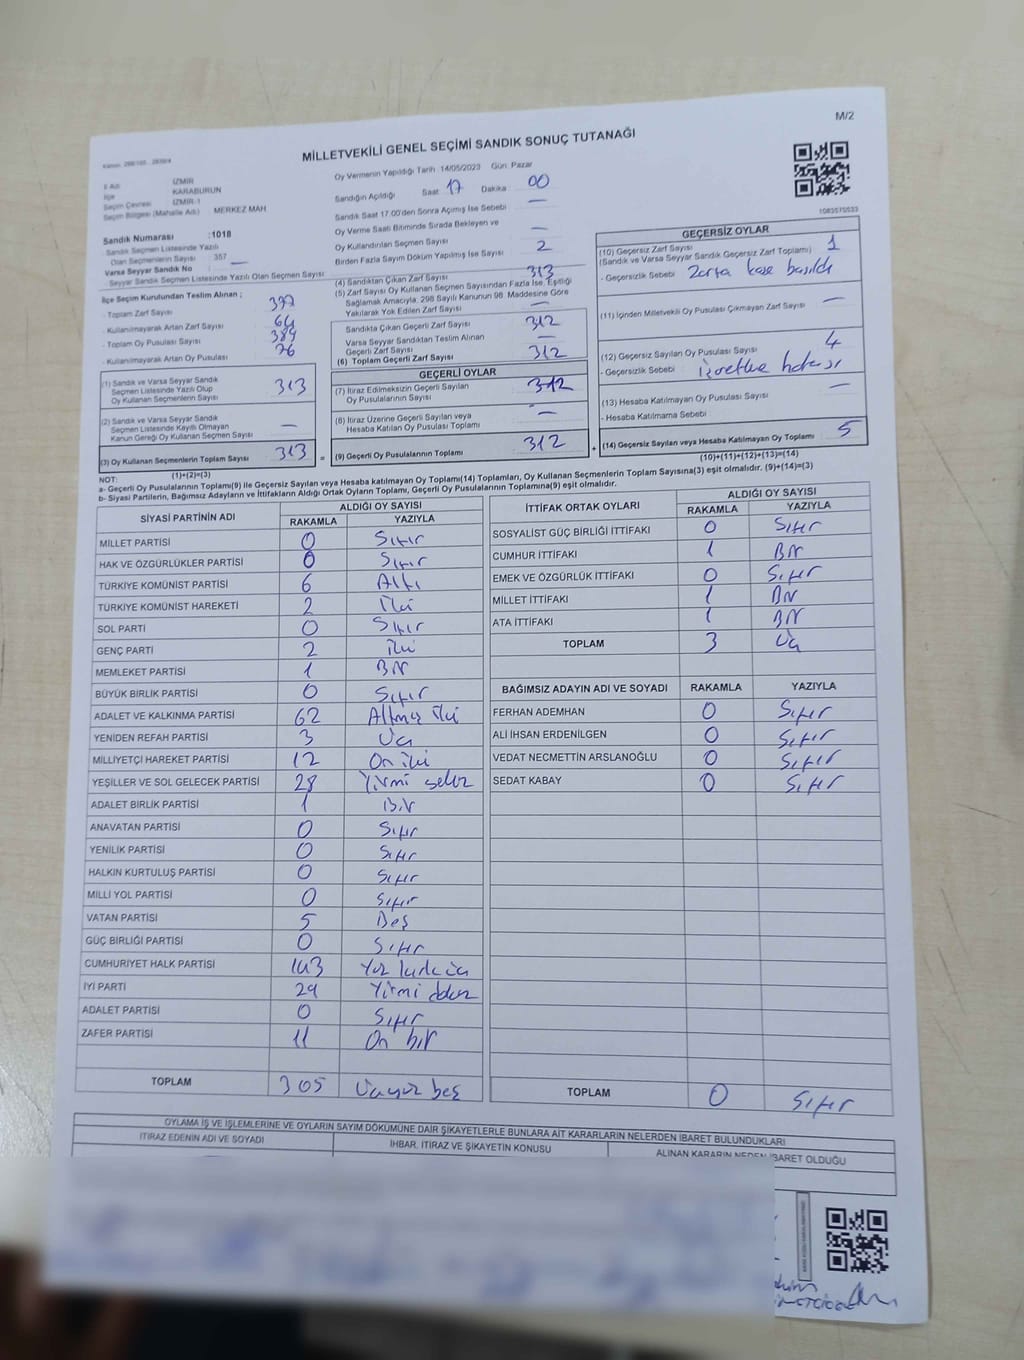 M/2
MİLLETVEKİLİ GENEL SEÇİMİ SANDIK SONUÇ TUTANAĞI
Oy Vermenin Yapıldığı Tarih 14/05/2023 Gün: Pazar
İl Adı : İZMİR
İlçe : KARABURUN
Seçim Çevresi : İZMİR-1
Seçim Bölgesi (Mahalle Adı) : MERKEZ MAH
Sandık Numarası :1018
Sandık Seçmen Listesinde Yazılı
Olan Seçmenlerin Sayısı 357
Varsa Seyyar Sandık No —
Seyyar Sandık Seçmen Listesinde Yazılı Olan Seçmen Sayısı
Sandığın Açıldığı Saat 17 Dakika 00
Sandık Saat 17.00'den Sonra Açımış İse Sebebi —
Oy Verme Saati Bitiminde Sırada Bekleyen ve
Oy Kullandırılan Seçmen Sayısı —
Birden Fazla Sayım Döküm Yapılmış İse Sayısı 2
1083575033
İlçe Seçim Kurulundan Teslim Alınan ;
- Toplam Zarf Sayısı : 377
- Kullanılmayarak Artan Zarf Sayısı : 64
- Toplam Oy Pusulası Sayısı : 389
- Kullanılmayarak Artan Oy Pusulası : 76
(1) Sandık ve Varsa Seyyar Sandık
Seçmen Listesinde Yazılı Olup
Oy Kullanan Seçmenlerin Sayısı 313
(2) Sandık ve Varsa Seyyar Sandık
Seçmen Listesinde Kayıtlı Olmayan
Kanun Gereği Oy Kullanan Seçmen Sayısı —
(3) Oy Kullanan Seçmenlerin Toplam Sayısı 313 =
(1)+(2)=(3)
(4) Sandıktan Çıkan Zarf Sayısı 313
(5) Zarf Sayısı Oy Kullanan Seçmen Sayısından Fazla İse, Eşitliği
Sağlamak Amacıyla, 298 Sayılı Kanunun 98. Maddesine Göre
Yakılarak Yok Edilen Zarf Sayısı —
Sandıkta Çıkan Geçerli Zarf Sayısı 312
Varsa Seyyar Sandıktan Teslim Alınan
Geçerli Zarf Sayısı —
(6) Toplam Geçerli Zarf Sayısı 312
GEÇERLİ OYLAR
(7) İtiraz Edilmeksizin Geçerli Sayılan
Oy Pusulalarının Sayısı 312
(8) İtiraz Üzerine Geçerli Sayılan veya
Hesaba Katılan Oy Pusulası Toplamı —
(9) Geçerli Oy Pusulalarının Toplamı 312 +
GEÇERSİZ OYLAR
(10) Geçersiz Zarf Sayısı 1
(Sandık ve Varsa Seyyar Sandık Geçersiz Zarf Toplamı)
- Geçersizlik Sebebi Zarfa kaşe basıldı
(11) İçinden Milletvekili Oy Pusulası Çıkmayan Zarf Sayısı —
(12) Geçersiz Sayılan Oy Pusulası Sayısı 4
- Geçersizlik Sebebi
(13) Hesaba Katılmayan Oy Pusulası Sayısı —
- Hesaba Katılmama Sebebi
(14) Geçersiz Sayılan veya Hesaba Katılmayan Oy Toplamı 5
(10)+(11)+(12)+(13)=(14)
NOT:
a- Geçerli Oy Pusulalarının Toplamı(9) ile Geçersiz Sayılan veya Hesaba katılmayan Oy Toplamı(14) Toplamları, Oy Kullanan Seçmenlerin Toplam Sayısına(3) eşit olmalıdır. (9)+(14)=(3)
b- Siyasi Partilerin, Bağımsız Adayların ve İttifakların Aldığı Ortak Oyların Toplamı, Geçerli Oy Pusulalarının Toplamına(9) eşit olmalıdır.
SİYASİ PARTİNİN ADI ALDIĞI OY SAYISI
RAKAMLA YAZIYLA
MİLLET PARTİSİ 0 Sıfır
HAK VE ÖZGÜRLÜKLER PARTİSİ 0 Sıfır
TÜRKİYE KOMÜNİST PARTİSİ 6 Altı
TÜRKİYE KOMÜNİST HAREKETİ 2 İki
SOL PARTİ 0 Sıfır
GENÇ PARTİ 2 İki
MEMLEKET PARTİSİ 1 Bir
BÜYÜK BİRLİK PARTİSİ 0 Sıfır
ADALET VE KALKINMA PARTİSİ 62 Altmış İki
YENİDEN REFAH PARTİSİ 3 Üç
MİLLİYETÇİ HAREKET PARTİSİ 12 On iki
YEŞİLLER VE SOL GELECEK PARTİSİ 28 Yirmi sekiz
ADALET BİRLİK PARTİSİ 1 Bir
ANAVATAN PARTİSİ 0 Sıfır
YENİLİK PARTİSİ 0 Sıfır
HALKIN KURTULUŞ PARTİSİ 0 Sıfır
MİLLİ YOL PARTİSİ 0 Sıfır
VATAN PARTİSİ 5 Beş
GÜÇ BİRLİĞİ PARTİSİ 0 Sıfır
CUMHURİYET HALK PARTİSİ 143 Yüz kırk üç
İYİ PARTİ 29 Yirmi dokuz
ADALET PARTİSİ 0 Sıfır
ZAFER PARTİSİ 11 On bir
TOPLAM 305 Üçyüz beş
İTTİFAK ORTAK OYLARI ALDIĞI OY SAYISI
RAKAMLA YAZIYLA
SOSYALİST GÜÇ BİRLİĞİ İTTİFAKI 0 Sıfır
CUMHUR İTTİFAKI 1 Bir
EMEK VE ÖZGÜRLÜK İTTİFAKI 0 Sıfır
MİLLET İTTİFAKI 1 Bir
ATA İTTİFAKI 1 Bir
TOPLAM 3 Üç
BAĞIMSIZ ADAYIN ADI VE SOYADI RAKAMLA YAZIYLA
FERHAN ADEMHAN 0 Sıfır
ALİ İHSAN ERDENİLGEN 0 Sıfır
VEDAT NECMETTİN ARSLANOĞLU 0 Sıfır
SEDAT KABAY 0 Sıfır
TOPLAM 0 Sıfır
OYLAMA İŞ VE İŞLEMLERİNE VE OYLARIN SAYIM DÖKÜMÜNE DAİR ŞİKAYETLERLE BUNLARA AİT KARARLARIN NELERDEN İBARET BULUNDUKLARI
İTİRAZ EDENİN ADI VE SOYADI İHBAR, İTİRAZ VE ŞİKAYETİN KONUSU ALINAN KARARIN NEDEN İBARET OLDUĞU